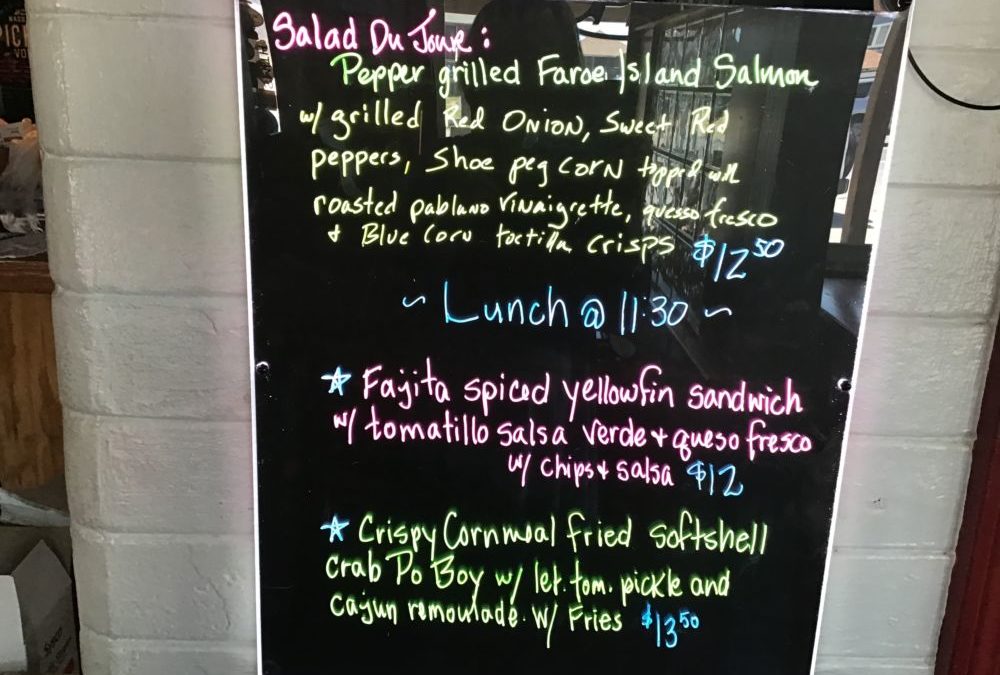 Salad Du Jour:
Pepper grilled Faroe Island Salmon
w/ grilled Red ONION, Sweet Red
peppers, Shoe peg CORN topped with
roasted pablano vinaigrette, quesso fresco
+ Blue Corn tortilla crisps $12.50
~ Lunch @ 11:30 ~
☆ Fajita spiced yellowfin sandwich
w/ tomatillo salsa verde + queso fresco
w/ chips + salsa $12
☆ Crispy Cornmeal fried softshell
crab Po Boy w/ let. tom. pickle and
cajun remoulade. w/ Fries $13.50